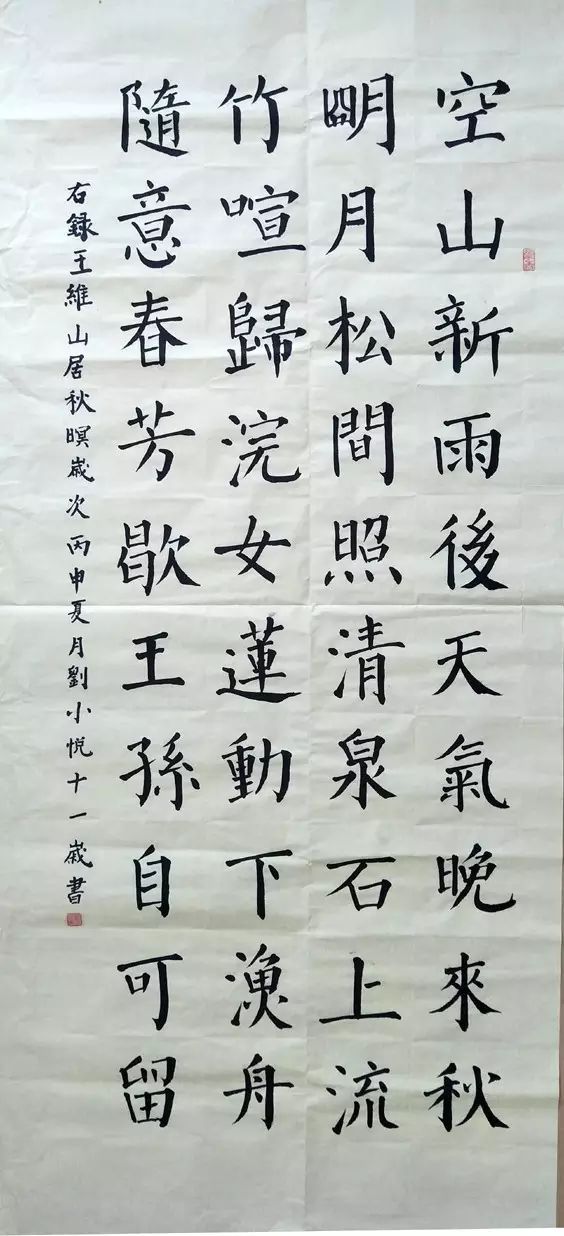 空山新雨後天氣晚來秋
朙月松間照清泉石上流
竹喧歸浣女蓮動下漁舟
隨意春芳歇王孫自可留
右録王維山居秋暝歲次丙申夏月劉小悅十一歲書